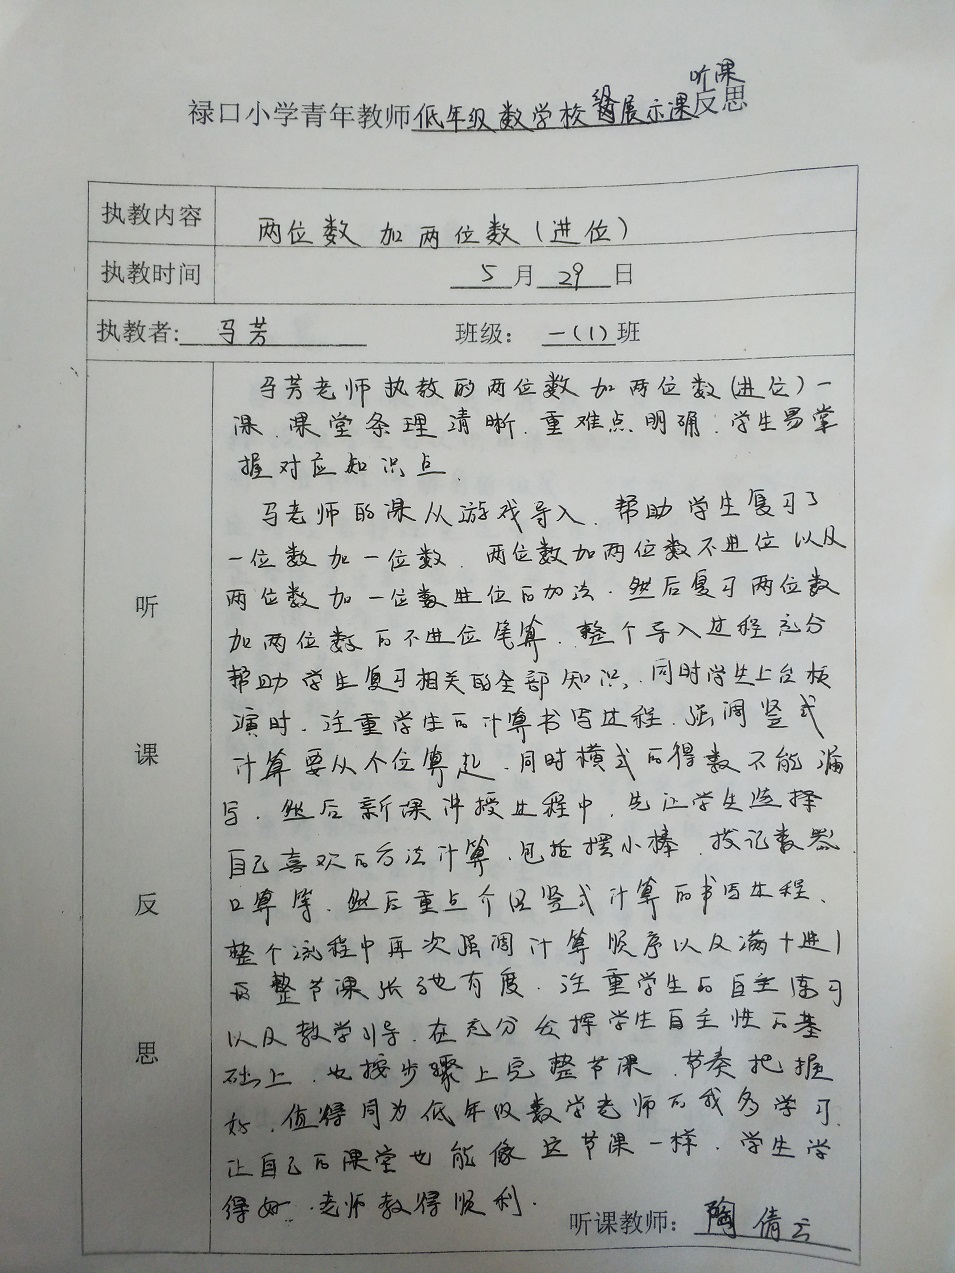 听课
禄口小学青年教师低年级数学校级展示课反思
执教内容
两位数加两位数(进位)
执教时间
5月29日
执教者: 马芳 班级: 一(1)班
听课反思
马芳老师执教的两位数加两位数(进位)一
课、课堂条理清晰、重难点明确、学生易掌
握对应知识点
马老师的课从游戏导入、帮助学生复习了
一位数加一位数、两位数加两位数不进位以及
两位数加一位数进位的加法.然后复习两位数
加两位数的不进位笔算.整个导入过程充分
帮助学生复习相关的全部知识.同时学生上台板
演时.注重学生的计算书写过程.强调竖式
计算要从个位算起.同时横式的得数不能漏
写.然后新课讲授过程中.先让学生选择
自己喜欢的方法计算.包括摆小棒、拨记数器、
口算等.然后重点介绍竖式计算的书写过程、
整个流程中再次强调计算顺序以及满十进1
整节课张弛有度.注重学生的自主练习
以及教学引导.在充分发挥学生自主性的基
础上.也按步骤上完整节课.节奏把握
好.值得同为低年级数学老师的我多学习.
让自己的课堂也能像这节课一样.学生学
得好.老师教得顺利.
听课教师: 陶倩云